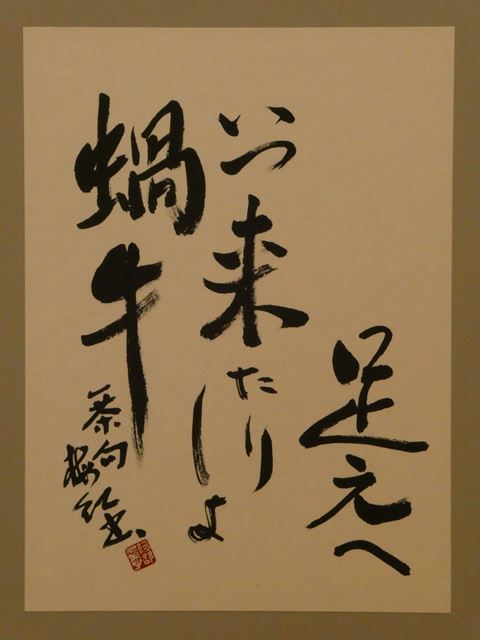 足元へ
いつ来たり
しよ
蝸牛
一茶句